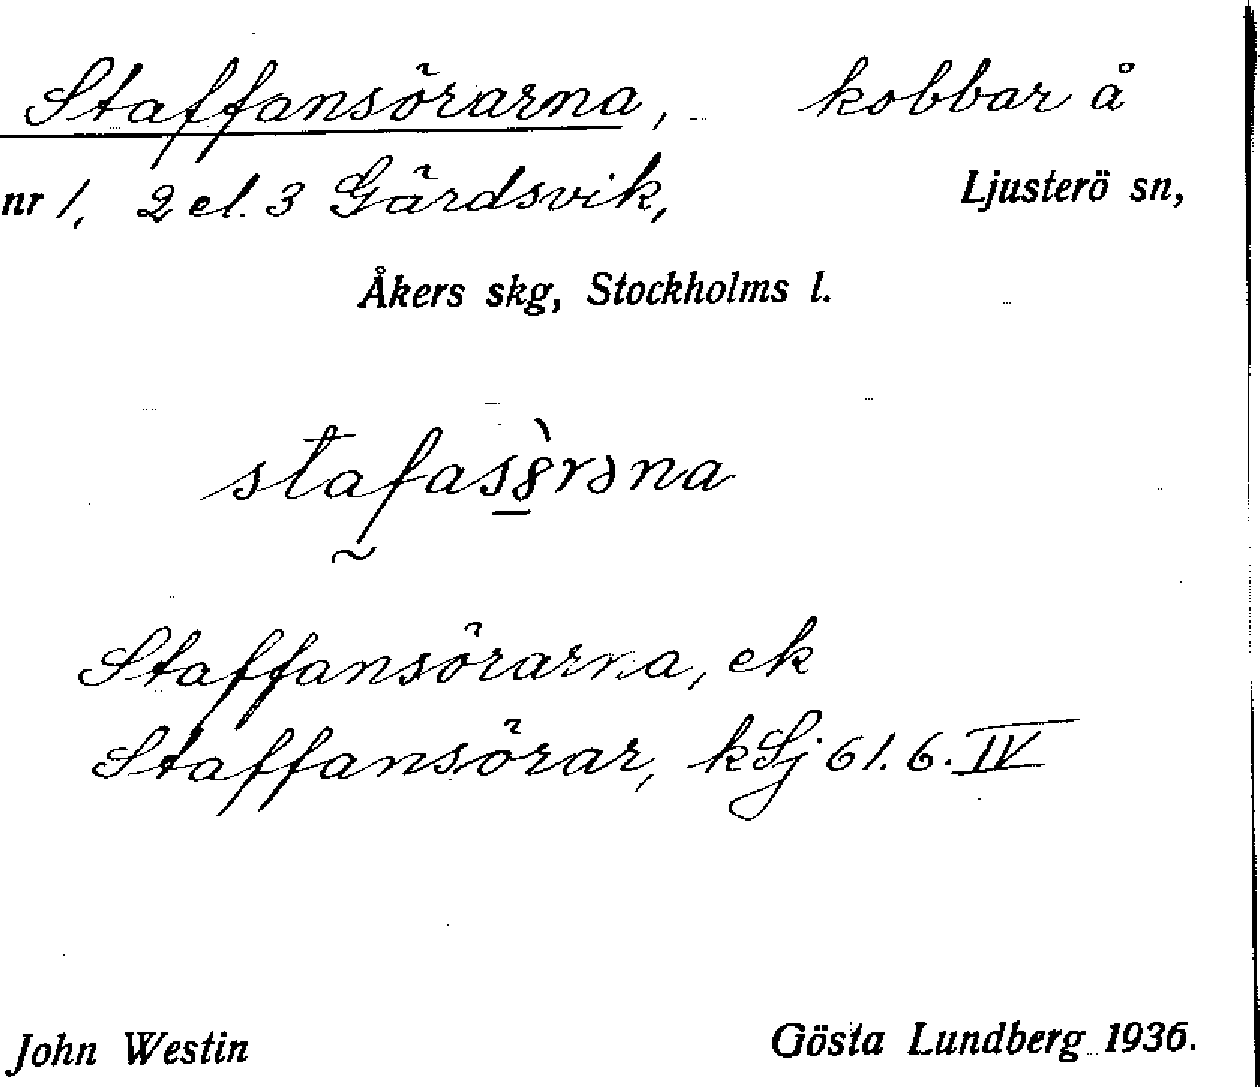 Staffansörarna, kobbar å
nr 1, 2 el. 3 Gärdsvik, Ljusterö sn,
Åkers skg, Stockholms l.
Staffansörarna, ek
Staffansörar, kSj 61.6.IV
John Westin Gösta Lundberg 1936.